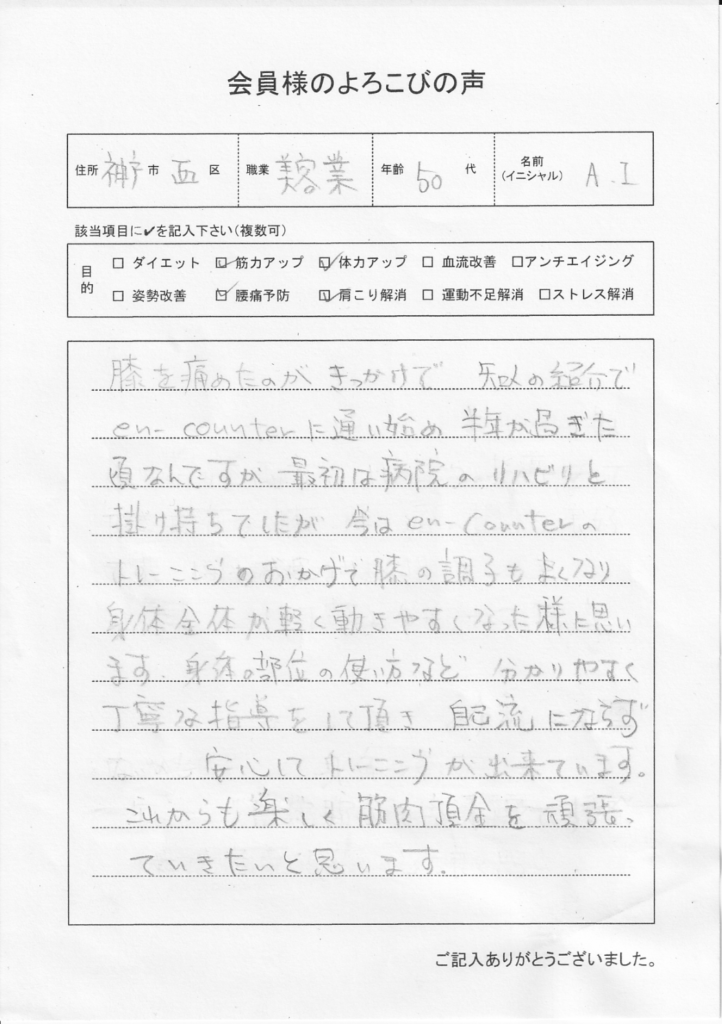 会員様のよろこびの声
住所 神戸市 西 区 職業 美容業 年齢 50 代 名前(イニシャル) A.I
該当項目に✔を記入下さい(複数可)
目的
□ ダイエット ☑ 筋力アップ ☑ 体力アップ □ 血流改善 □アンチエイジング
□ 姿勢改善 ☑ 腰痛予防 ☑ 肩こり解消 □ 運動不足解消 □ストレス解消
膝を痛めたのが きっかけで 知人の紹介で
en-counterに通い始め 半年が過ぎた
頃なんですが 最初は病院の リハビリと
掛け持ちでしたが 今は en-counterの
トレーニングのおかげで膝の調子もよくなり
身体全体が軽く動きやすくなった様に思い
ます。身体の部位の使い方など 分かりやすく
丁寧な指導をして頂き 自己流にならず
安心して トレーニングが出来ています。
これからも楽しく 筋肉貯金を頑張っ
ていきたいと思います。
ご記入ありがとうございました。